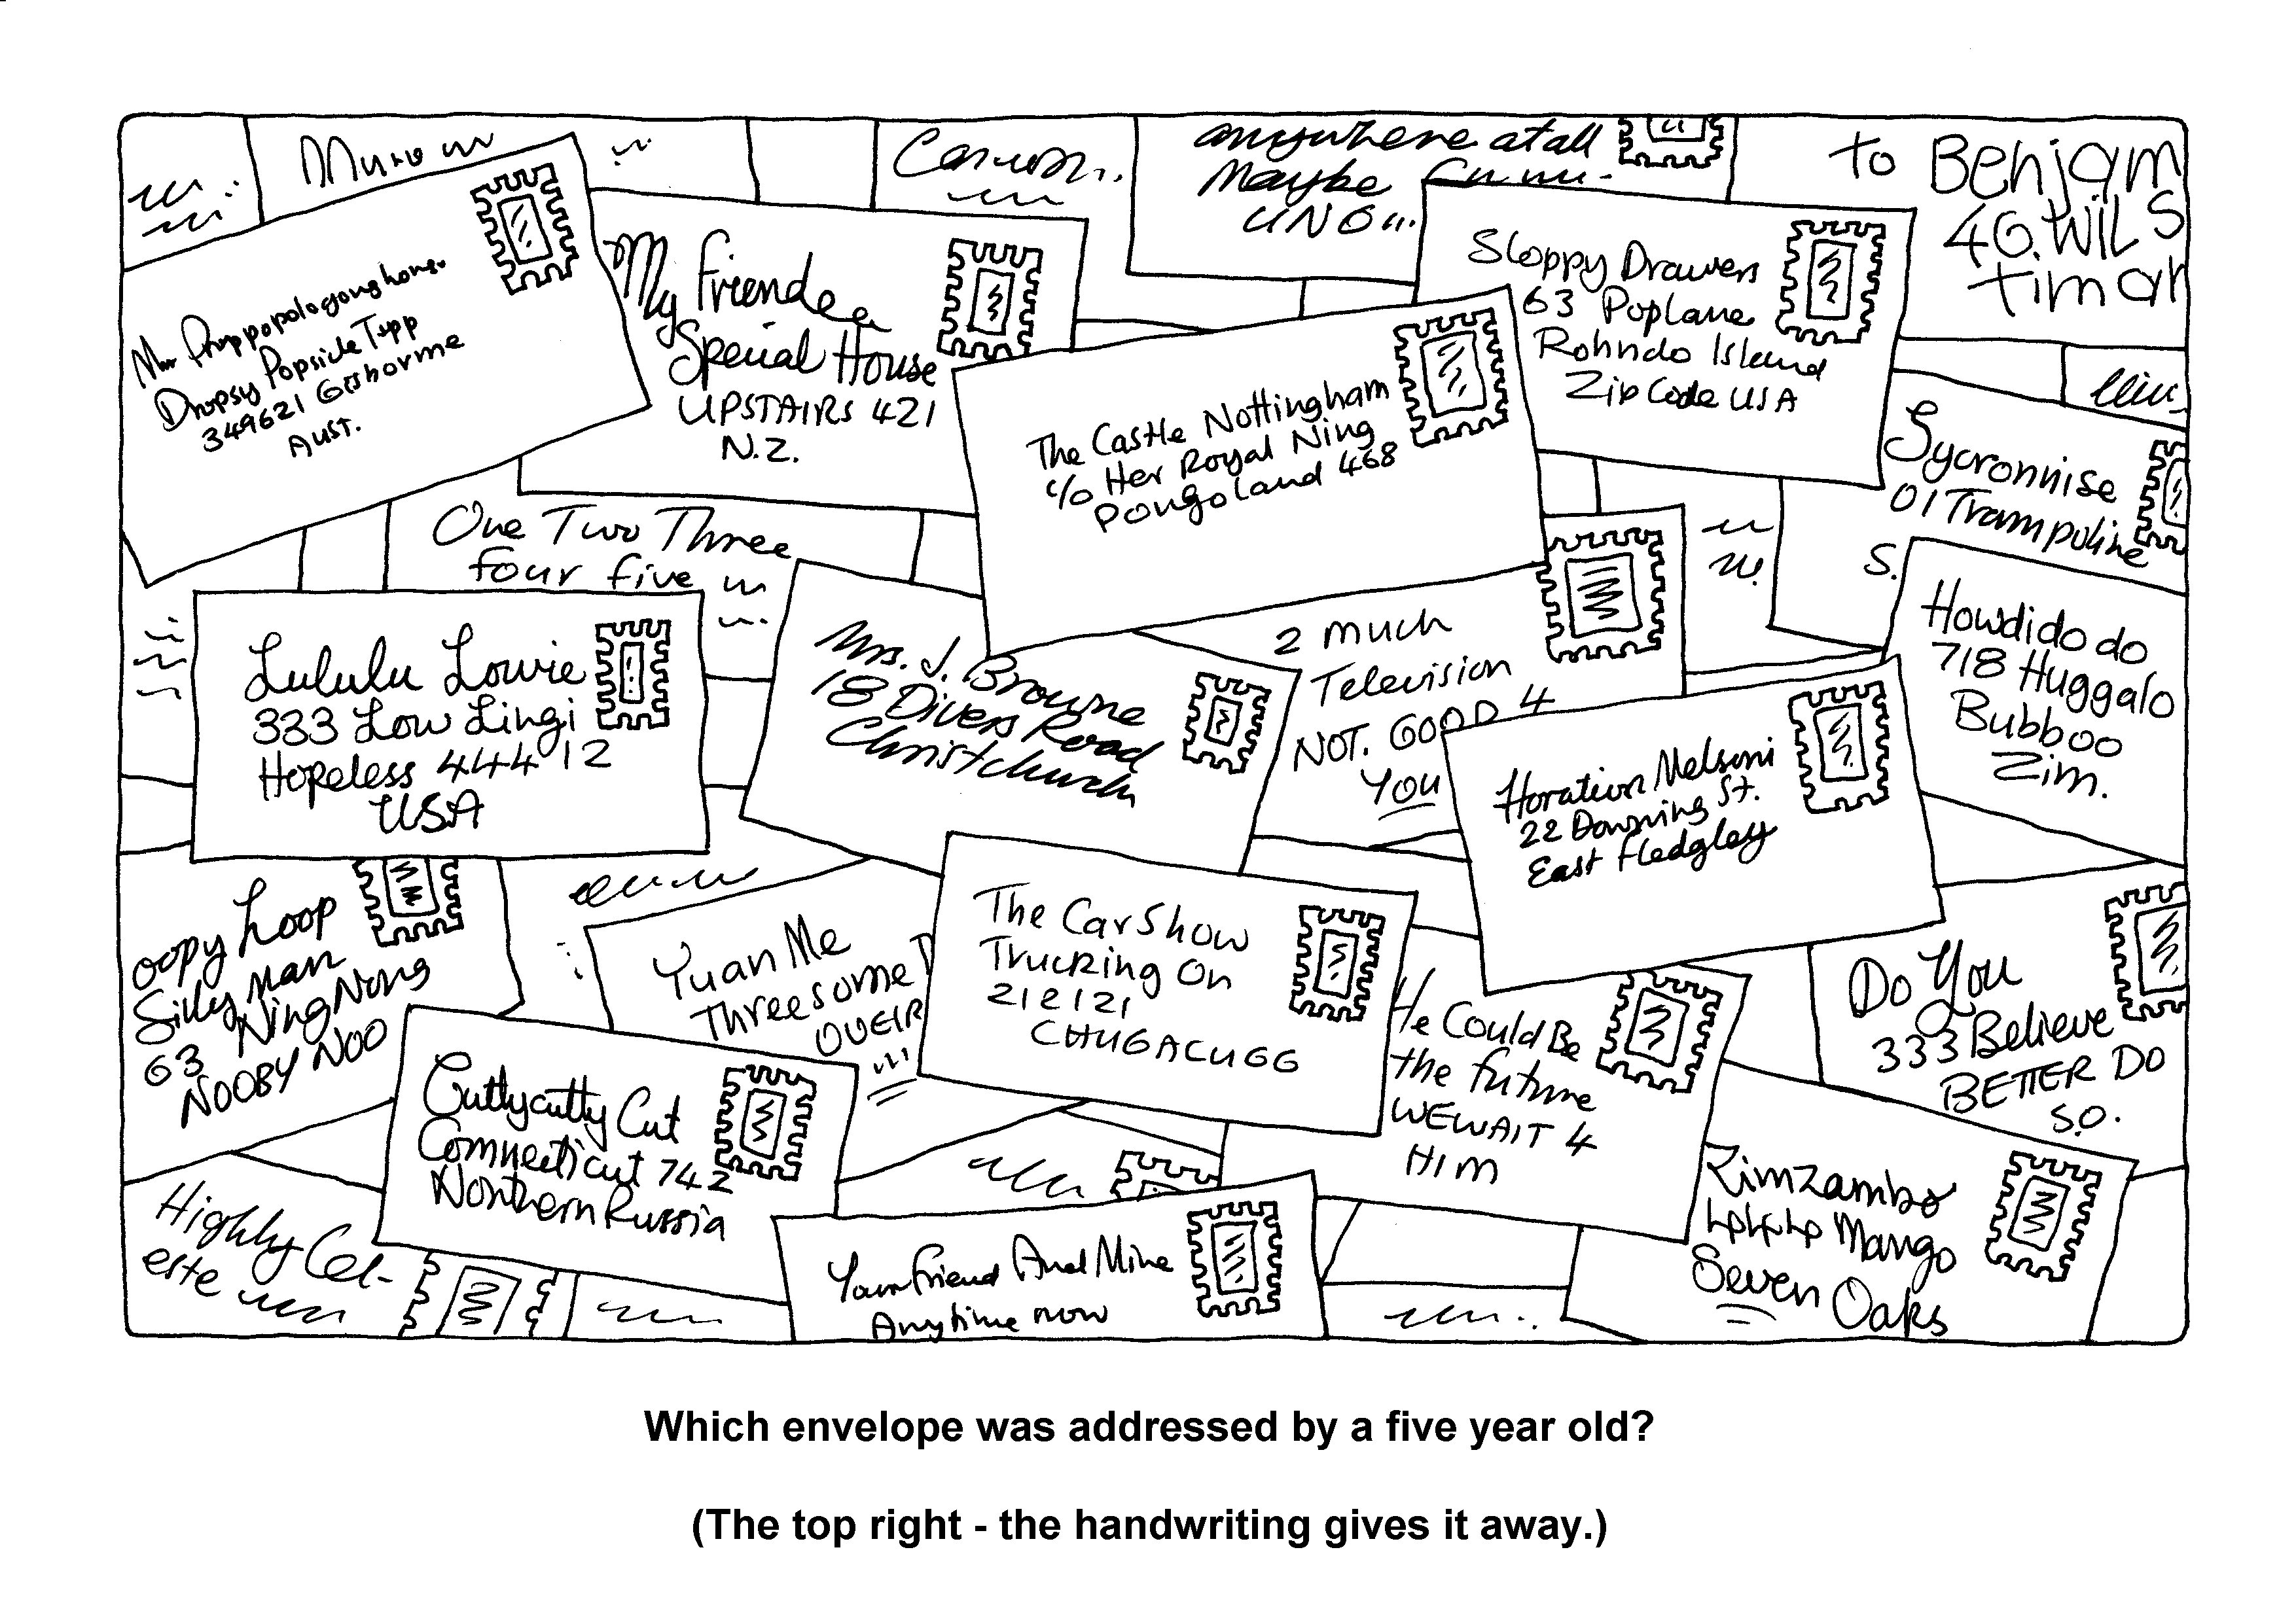 anywhere at all
Maybe
UNO
to Benjam
40. WILS
timar
Dropsy Popsicle Tupp
349621 Gisborme
AUST.
My Friende
Special House
UPSTAIRS 421
N.Z.
Sloppy Drawers
63 Poplane
Rohndo Island
Zip Code USA
The Castle Nottingham
c/o Her Royal Ning
Pongoland 468
Sycronnise
01 Trampoline
S.
One Two Three
four five
Lululu Lowie
333 Low Lingi
Hopeless 444 12
USA
Mrs. J. Browne
18 Divers Road
Christchurch
2 much
Television
NOT. GOOD 4
YOU
Howdido do
718 Huggalo
Bubboo
Zim.
Horation Melsoni
22 Downing St.
East Fledgley
oopy Loop
Silly Man
63 Ning Nong
NOOBY NOO
Yuan Me
Threesome
OVEIR
The Car Show
Trucking On
212121
CHUGACUGG
He Could Be
the future
WEWAIT 4
HIM
Do You
333 Believe
BETTER DO
S.O.
Cuttycutty Cut
Comnecticut 742
Northern Russia
Highly Cel-
este
Your Friend And Mine
Anytime now
Zimzambo
Mango
Seven Oaks
Which envelope was addressed by a five year old?
(The top right - the handwriting gives it away.)